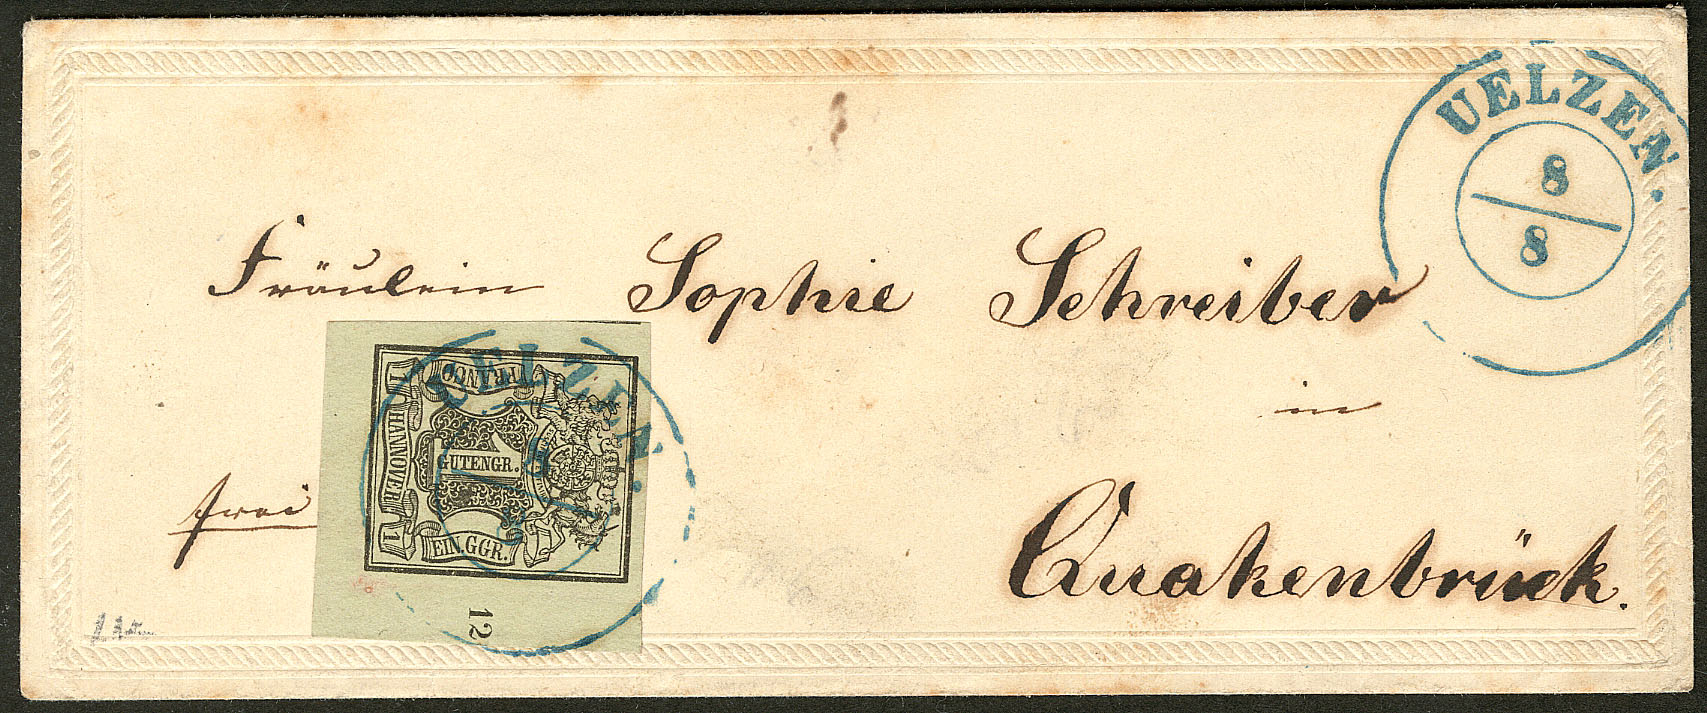 UELZEN.
8
8
Fräulein Sophie Schreiber
in
Quakenbrück.
frei
UELZEN.
FRANCO
1 HANNOVER 1
1
GUTENGR.
EIN.GGR.
12